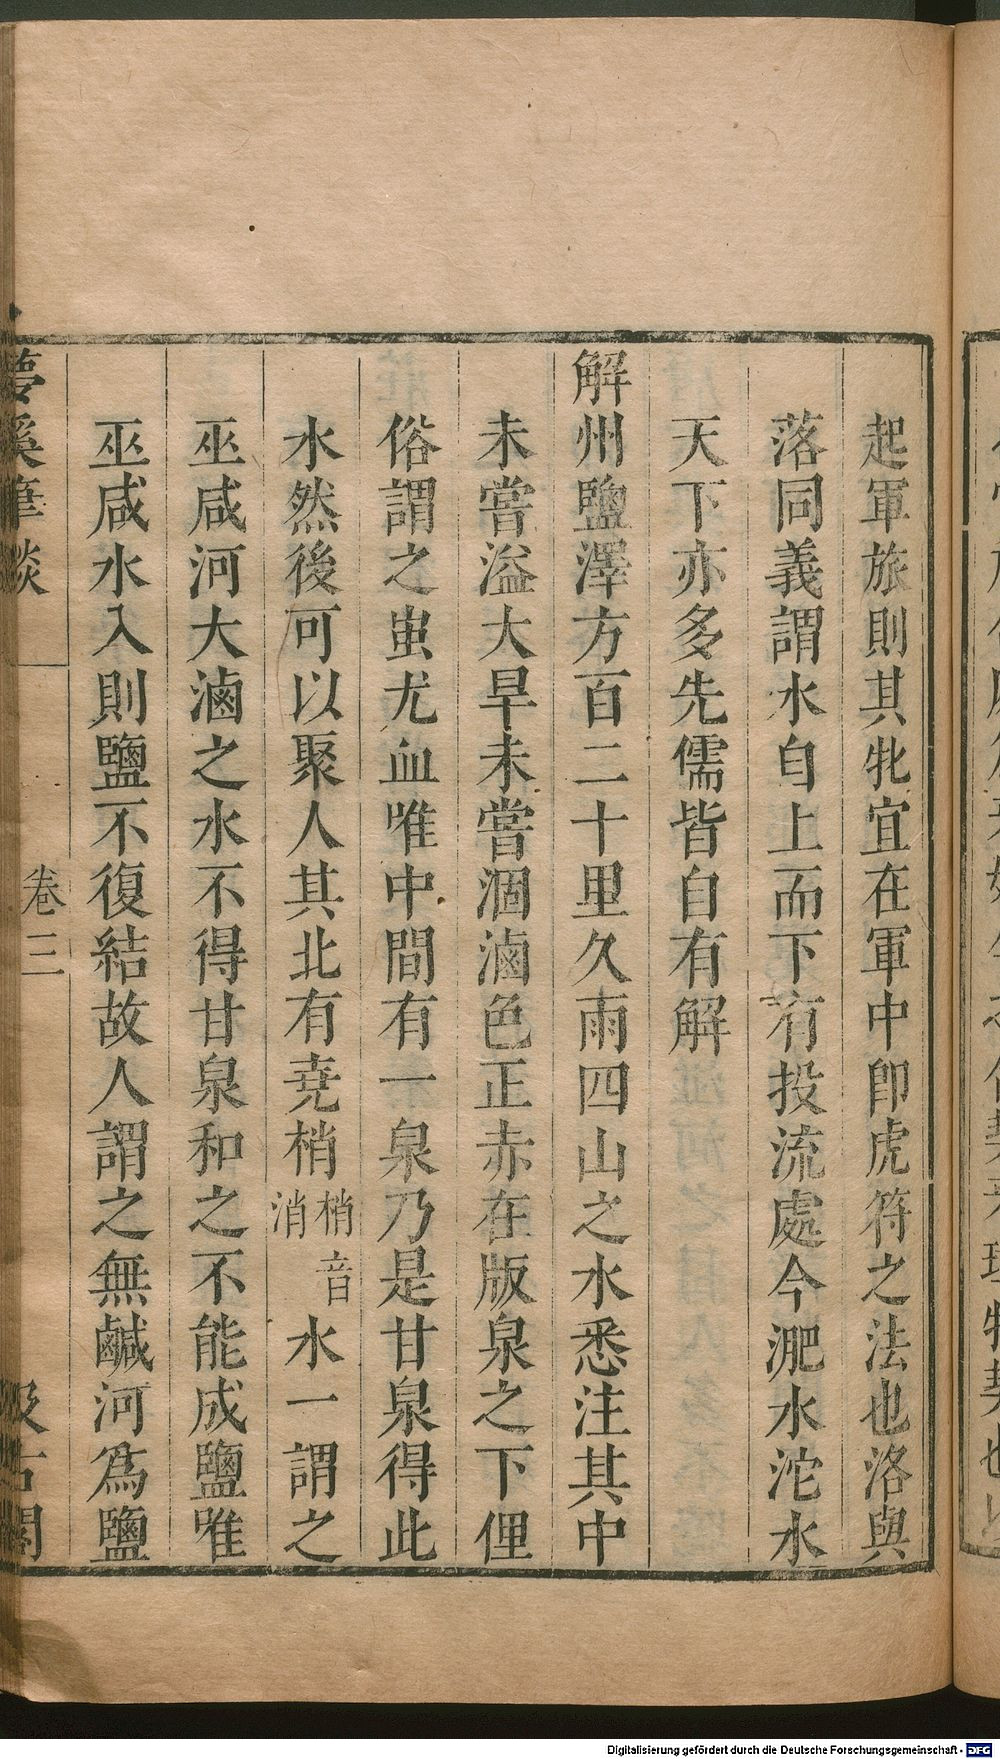 起軍旅則其牝宜在軍中卽虎符之法也洛與
落同義謂水自上而下有投流處今淝水沱水
天下亦多先儒皆自有解
解州鹽澤方百二十里久雨四山之水悉注其中
未嘗溢大旱未嘗涸滷色正赤在版泉之下俚
俗謂之蚩尤血唯中間有一泉乃是甘泉得此
水然後可以聚人其北有堯梢梢音消水一謂之
巫咸河大滷之水不得甘泉和之不能成鹽唯
巫咸水入則鹽不復結故人謂之無鹹河爲鹽
夢溪筆談
卷三
汲古閣
Digitalisierung gefördert durch die Deutsche Forschungsgemeinschaft - DFG